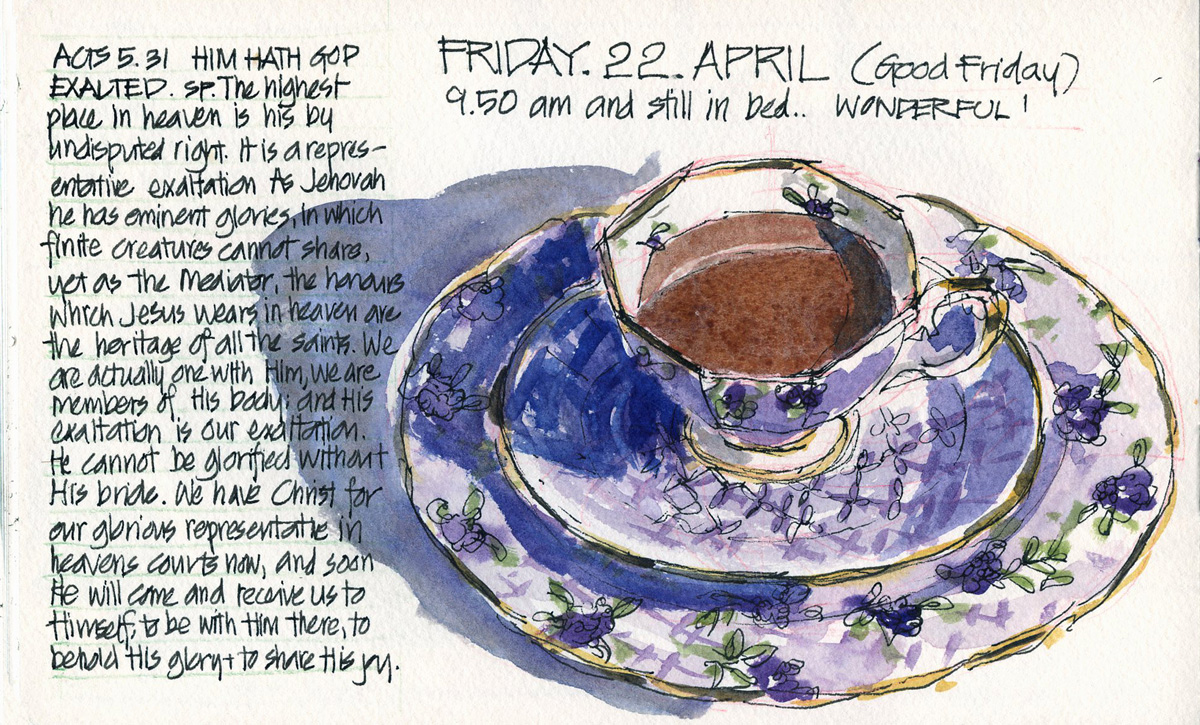 ACTS 5.31 HIM HATH GOD
EXALTED. SP. The highest
place in heaven is his by
undisputed right. It is a repres-
entative exaltation As Jehovah
he has eminent glories, in which
finite creatures cannot share,
yet as the Mediator, the honours
which Jesus wears in heaven are
the heritage of all the saints. We
are actually one with Him, we are
members of His body; and His
exaltation is our exaltation.
He cannot be glorified without
His bride. We have Christ for
our glorious representative in
heavens courts now, and soon
He will come and receive us to
Himself, to be with Him there, to
behold His glory + to share His joy.
FRIDAY. 22. APRIL (Good Friday)
9.50 am and still in bed.. WONDERFUL!